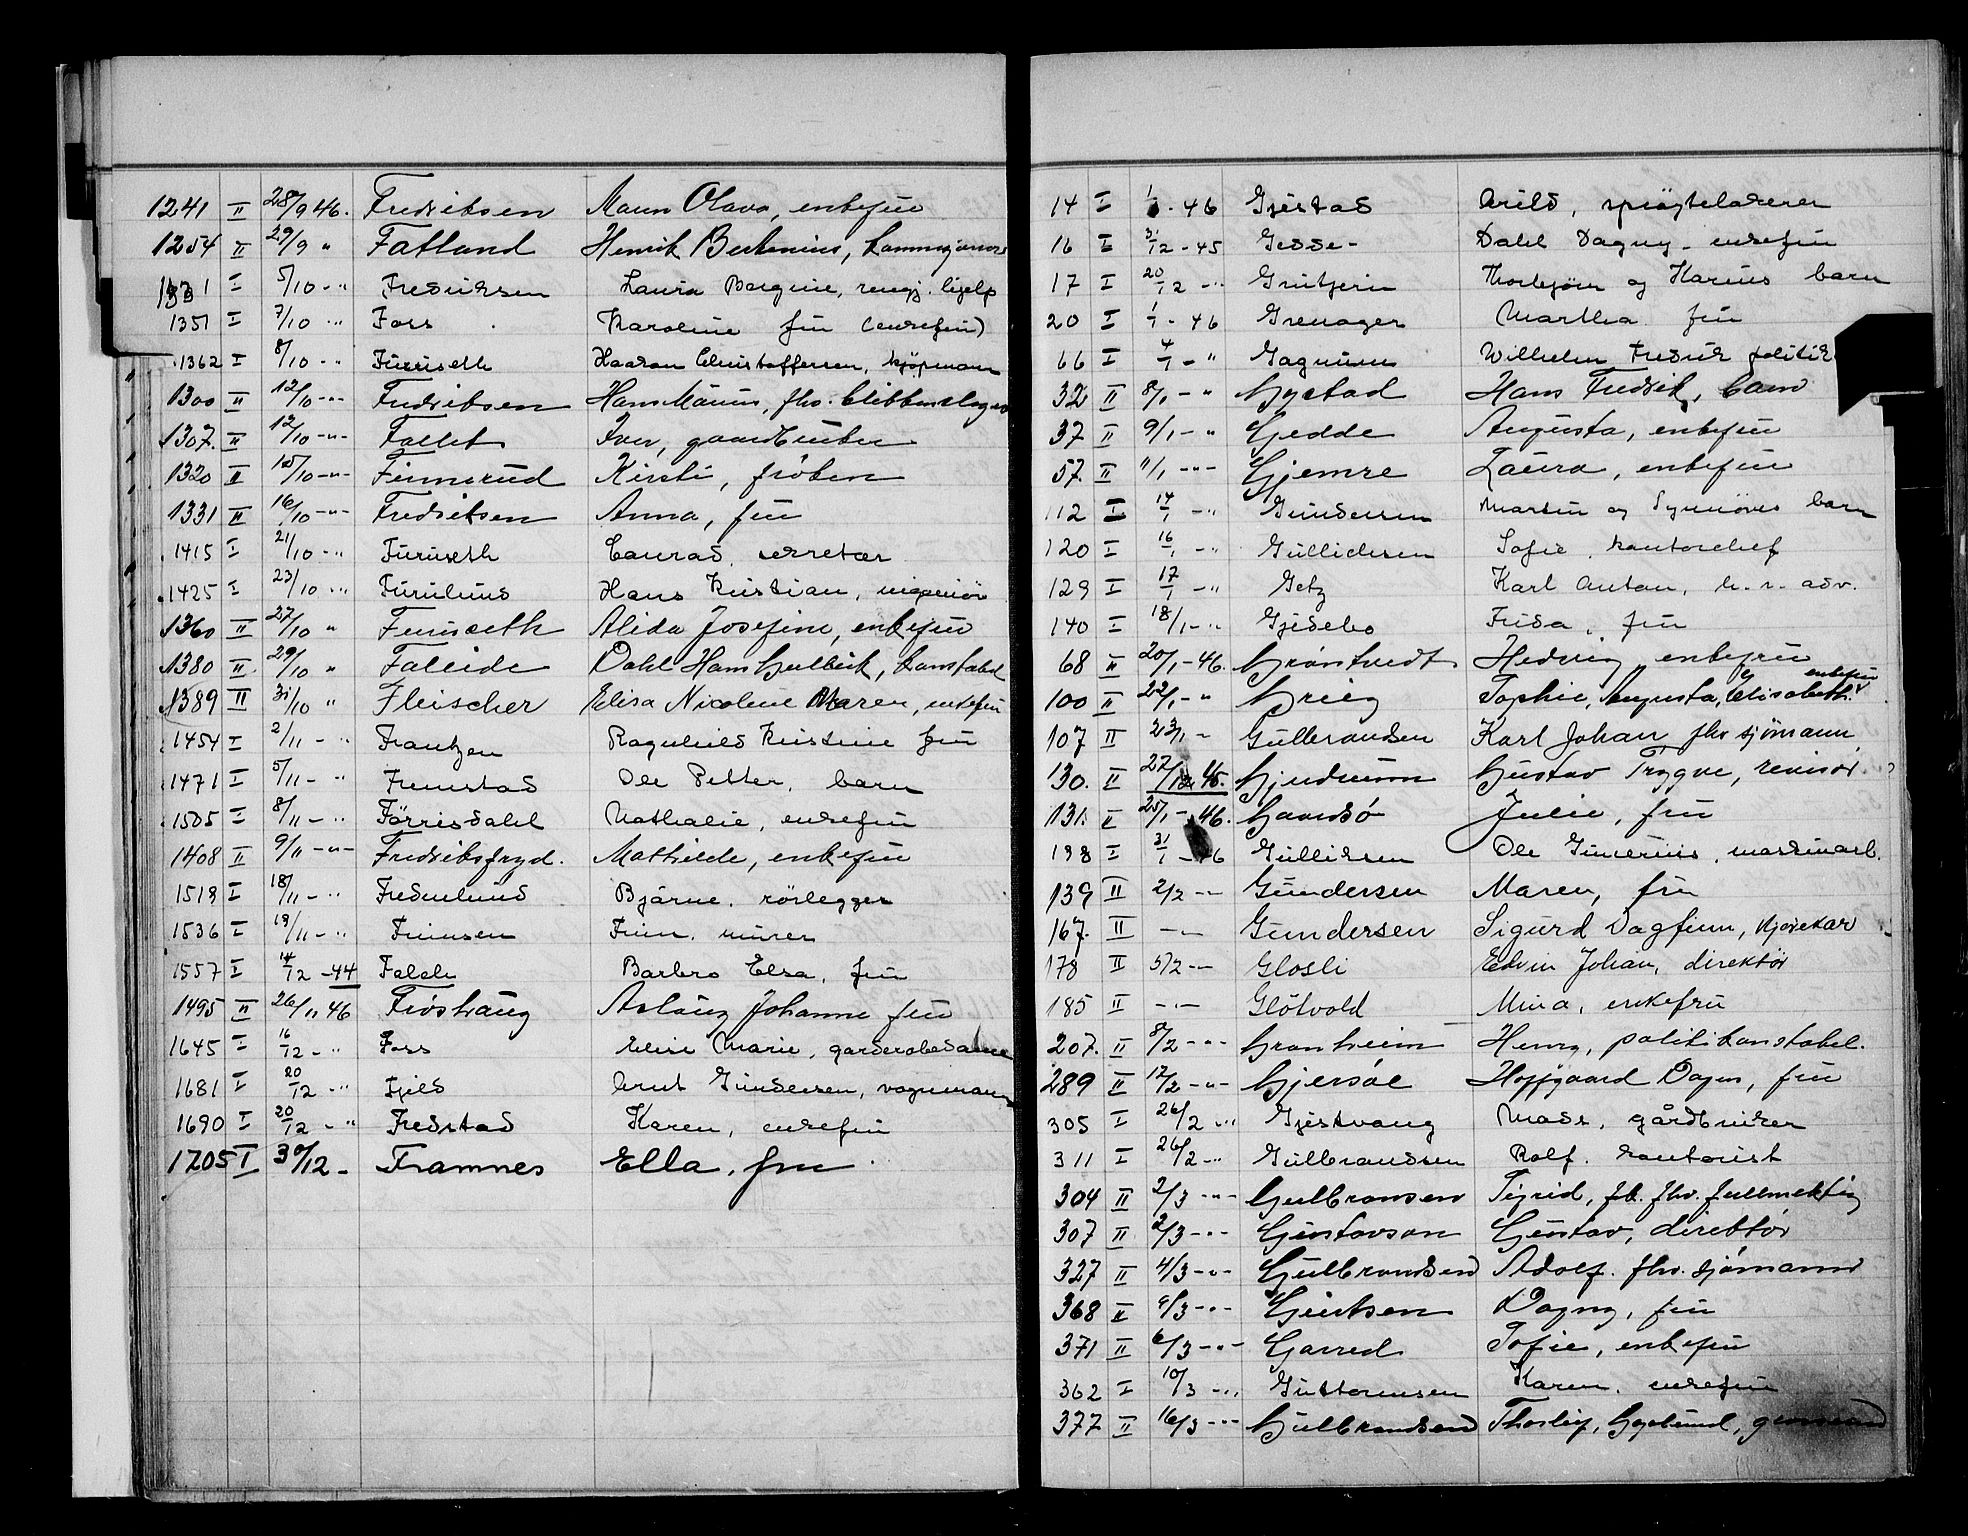 1241 II 28/9 46. Fredriksen Maren Olava, enkefru
1254 II 29/9 " Fatland Henrik Berthinius,
I 5/10 - " Fredriksen Laura Bergine, rengj. hjelp
1351 I 7/10 - " Foss Karoline fru (enkefru)
1362 I 8/10 - " Furuseth Haakon Christoffersen, kjøpmann
1300 II 12/10 - " - Fredriksen Hans Maurus, fhv.
1307. II 12/10 - " - Follet Iver, gaardbruker
1320 II 15/10 - " - Finnerud Kirsti, frøken
1331 II 16/10 - " - Fredriksen Anna, fru
1415 I 21/10 - " Furuseth Conrad, sekretær
1425 I 23/10 - " Furulund Hans Kristian, ingeniør
1360 II 27/10 " Furuseth Alida Josefine, enkefru
1380 II 29/10 " Faleide Dahl Hans, konstabel
1389 II 31/10 " Fleischer Elisa Nicoline Maren, enkefru
1454 I 2/11 - " Frantzen Ragnhild Kristine fru
1471 I 5/11 - " Fremstad Ole Petter, barn
1505 I 8/11 - " Førrisdahl Nathalie, enkefru
1408 II 9/11 - " - Fredriksfryd. Mathilde, enkefru
1519 I 18/11 - " Fredenlund Bjarne, rørlegger
1536 I 19/11 - " Finnsen Finn, murer
1557 I 14/12 - 44 Falch Barbro Elsa, fru
1495 II 26/11 46 Frøshaug Aslaug Johanne fru
1645 I 16/12 - " Foss Elise Marie, garderobedame
1681 I 20/12 - " Fjeld Arnt Gundersen, vognmann
1690 I 20/12 - " Fredstad Karen, enkefru
1705 I 30/12 - Framnes Ella, fru
14 I - 46 Gjestad Arild, sprøytelakerer
16 I 31/12 - 45 Gedde - Dahl Dagny - enkefru
17 I 20/12 - " Thorbjørn og Karens barn
20 I 1/1 - 46 Grenager Martha fru
66 I 4/1 - " Gagnum Wilhelm Fredrik
32 II 8/1 - " Gystad Hans Fredrik, barn
37 II 9/1 - " Gedde Augusta, enkefru
57. II 11/1 - " - Gjemre Laura, enkefru
112 I 14/1 - " Gundersen Martin og Synnøves barn
120 I 16/1 - " Gullichsen Sofie, kontorchef
129 I 17/1 - " Getz Karl Anton, h. r. adv.
140 I 18/1 - " Gjedebo Frida, fru
68 II 20/1 - 46. Grøntvedt Hedvig enkefru
100 II 22/1 - " Grieg Sophie, Augusta, Elisabeth. enkefru
107 II 23/1 - Gulbrandsen Karl Johan fhv sjømann
130. II 27/12 45. Gjendrum Gustav Trygve, revisor
131. II 25/1 - 46. Gaardsø Julie, fru
138 I 31/1 - 46 Gullichsen Ole Gunerius, maskinarb.
139 II 2/2 - Gundersen Maren, fru
167. II - " - Gundersen Sigurd Dagfinn, kjørekar
178 II 5/2 - Glosli Edvin Johan, direktør
185 II - " - Gløtvold Mina, enkefru
207. II 8/2 - " - Granheim Henry, politikonstabel.
289 II 17/2 - " - Gjersøe Hoffgaard Dagny, fru
305 I 26/2 - " Gjestvang Mads, gårdbruker
311 I 26/2 - " Gulbrandsen Rolf, kontorist
304 II 2/3 - " - Gulbransen Sigrid, fk. fhv. fullmektig
307 II 2/3 - " - Gustavson Gustav, direktør
327 II 4/3 - " - Gulbrandsen Adolf. fhv. sjømann
368 II 6/3 - " - Dagny, fru
371 II 6/3 - " - Garred Sofie, enkefru
362 I 10/3 - " Guttormsen Karen, enkefru
377 II 16/3 - " - Gulbrandsen Thorleif,